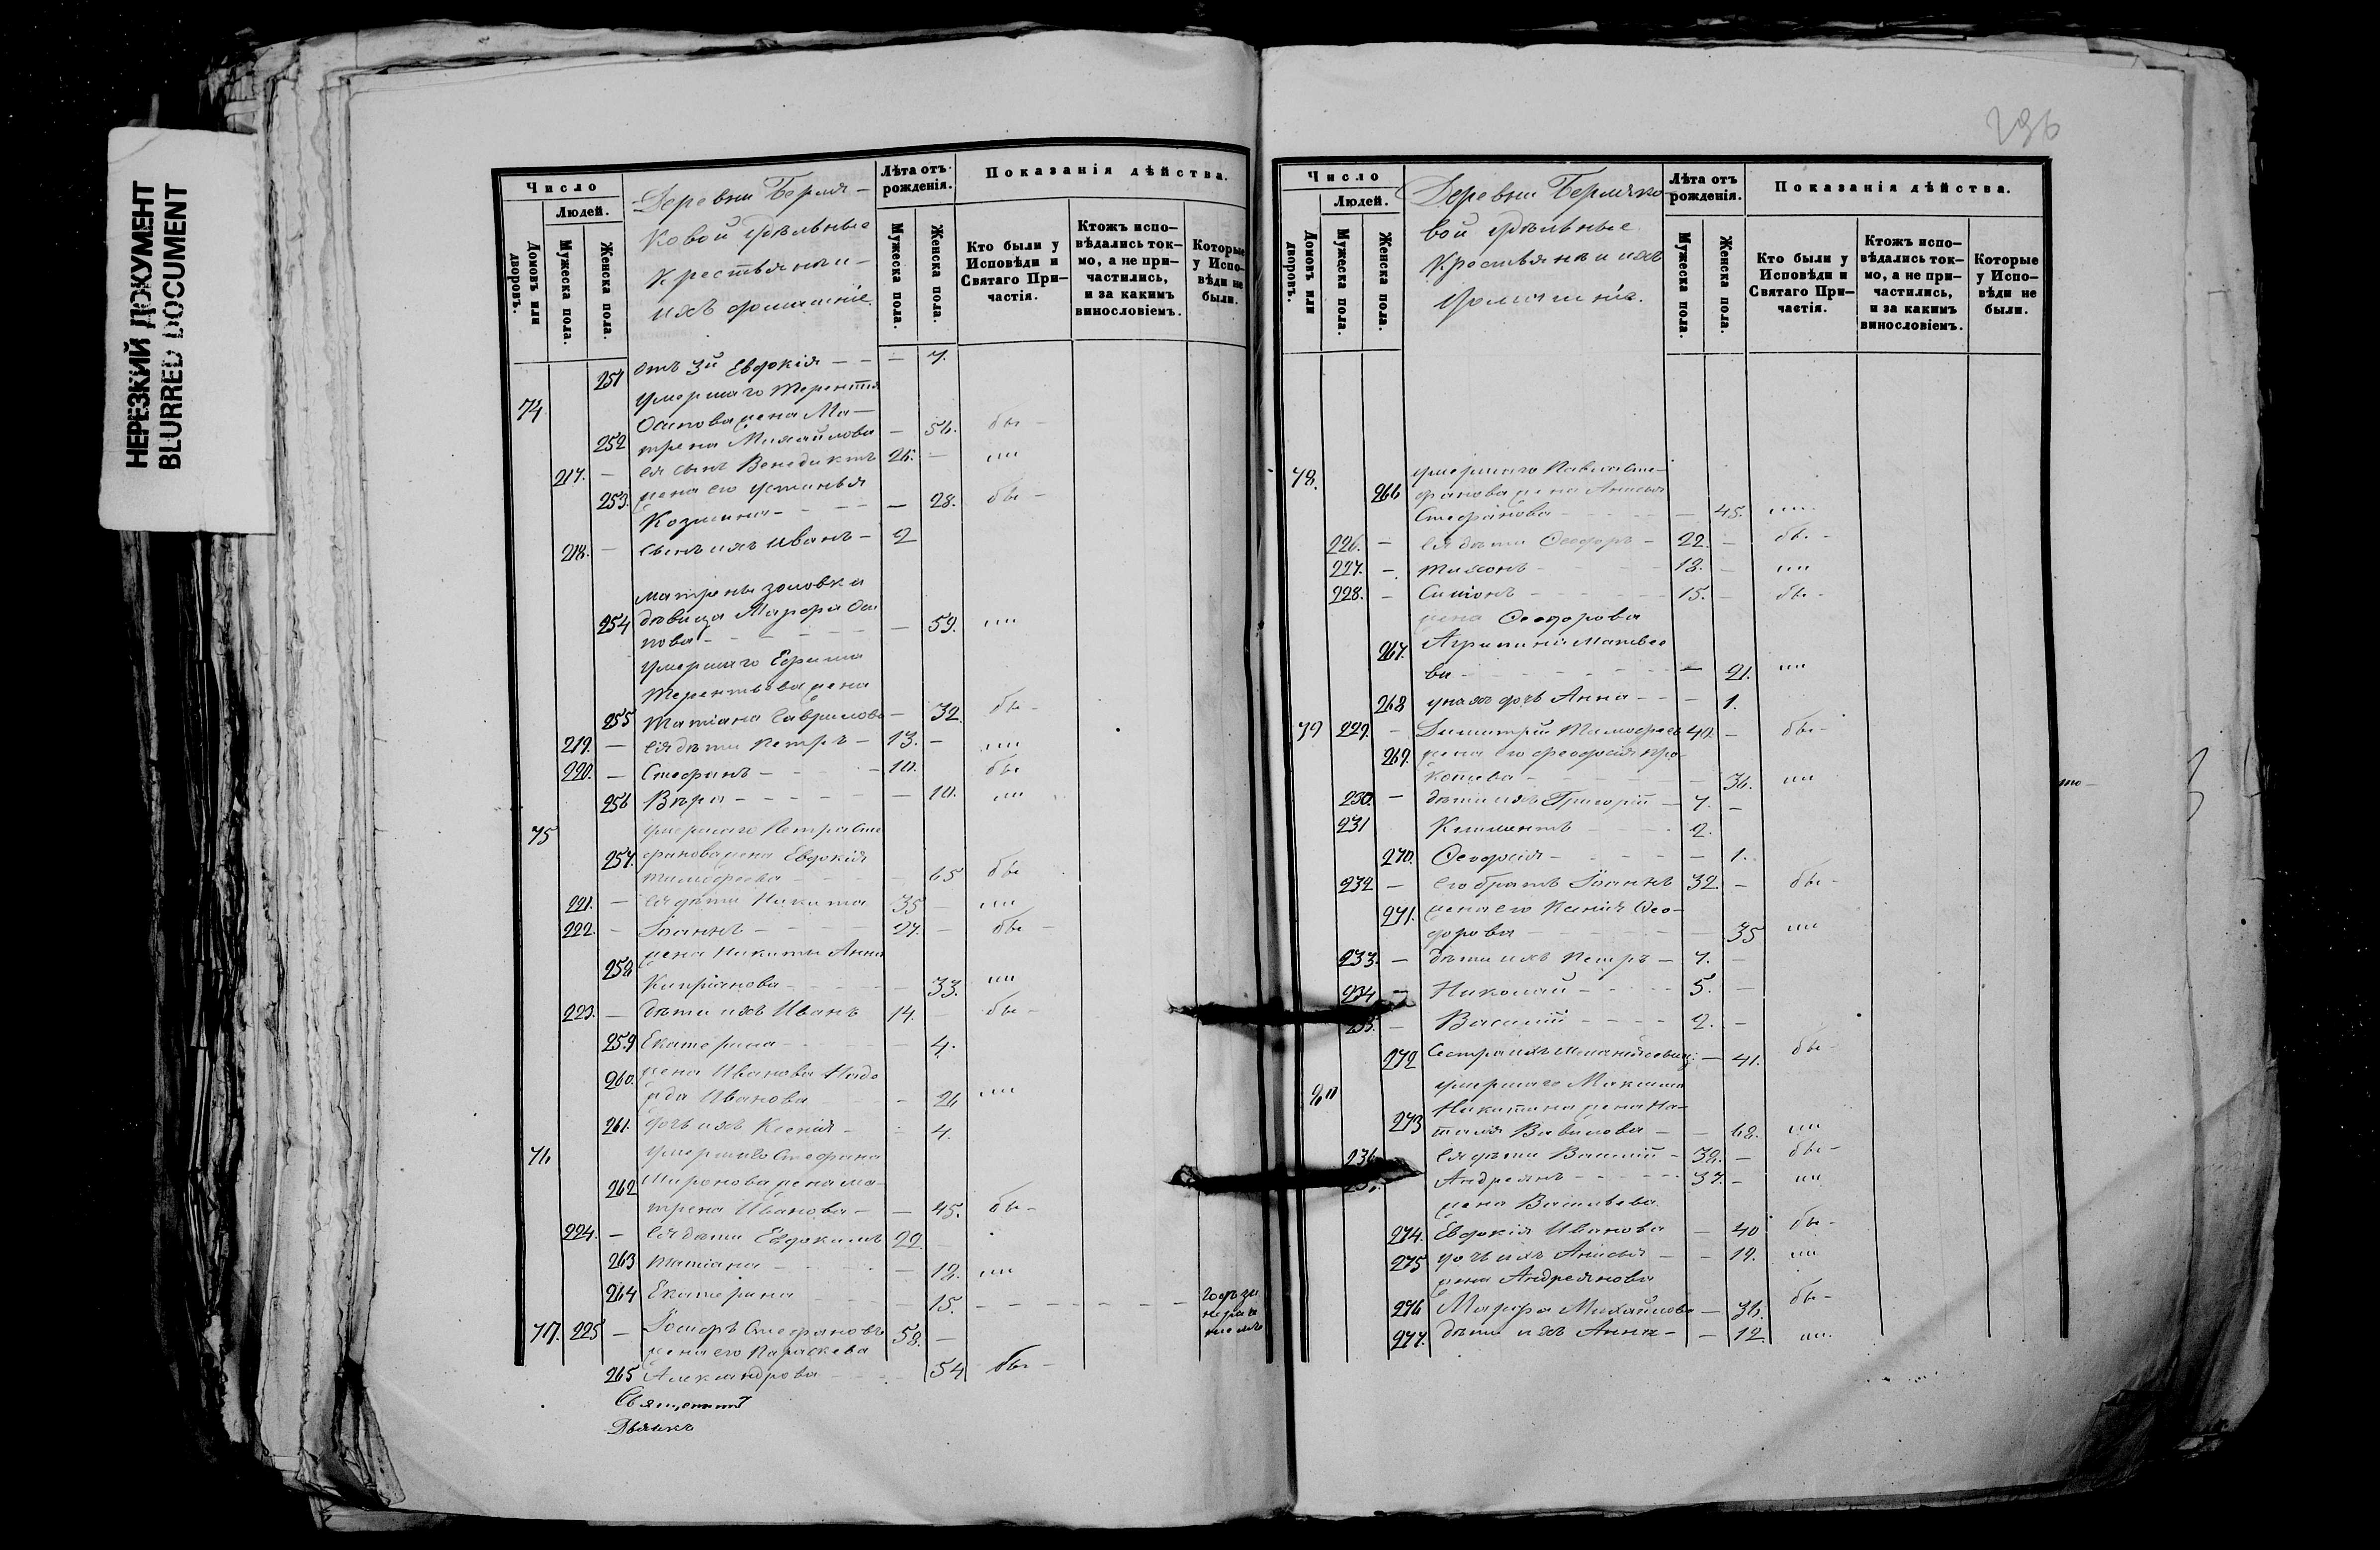 НЕРЕЗКИЙ ДОКУМЕНТ
BLURRED DOCUMENT
Число
Людей.
Домовъ или дворовъ.
Мужеска пола.
Женска пола.
Деревни Бермя-
ковой удѣльные
крестьяне и
ихъ домашніе.
Лѣта отъ рожденія.
Мужеска пола.
Женска пола.
Показанія дѣйства.
Кто были у Исповѣди и Святаго При-частія.
Ктожъ испо-вѣдались ток-мо, а не при-частились, и за какимъ винословіемъ.
Которые у Испо-вѣди не были.
251 отъ 3й Евдокія - - - 7.
74 умершаго Терентія
Осипова жена Ма-
252 трена Михайлова - 56. бы -
217. - ея сынъ Венедиктъ 26. - ли
253. жена его Устинья
Козмина - - - 28. бы -
218. - сынъ ихъ Иванъ - 2
Матрены золовка
254 дѣвица Марфа Оси
пова - - - 59. ли
умершаго Ефима
Терентьева жена
255 Татіана Гаврилова - 32. бы -
219. - ея дѣти Петръ - 13. - ли
220. - Стефанъ - - 10. бы
256 Вѣра - - - - 10. ли
75 умершаго Петра Сте
257. фанова жена Евдокія
Тимофеева - - 65 бы
221. - ея дѣти Никита 35 - ли
222. - Іоаннъ - - - 27. - бы -
258 жена Никиты Анна
Кипріянова - - - 33. ли
223. - дѣти ихъ Иванъ 14. - бы -
259 Екатерина - - - 4.
260. жена Иванова Наде
жда Иванова - 26 ли
261. дочь ихъ Ксенія - - 4.
76 умершаго Стефана
262 Миронова жена Ма-
трена Иванова - - 45. бы -
224. - ея дѣти Евдокимъ 22.
263 Татіана - - - 18. ли
264 Екатерина - - - 15. - - - - - -
77. 225 - Іосифъ Стефановъ 58. -
жена его Параскева
265 Александрова - - 54 бы -
Священникъ
Дьячекъ
296
Число
Людей.
Домовъ или дворовъ.
Мужеска пола.
Женска пола.
Деревни Бермяко
вой удѣльные
крестьяне и ихъ
домашніе.
Лѣта отъ рожденія.
Мужеска пола.
Женска пола.
Показанія дѣйства.
Кто были у Исповѣди и Святаго При-частія.
Ктожъ испо-вѣдались ток-мо, а не при-частились, и за какимъ винословіемъ.
Которые у Испо-вѣди не были.
78. умершаго Павла Сте-
266 фанова жена Анисья
Стефанова - - - 45. ли
226. - ея дѣти Ѳеодоръ - 22. - бы -
227. - Тихонъ - - - 18. - ли
228. - Симіонъ - - - 15. - бы -
жена Ѳеодорова
267. Агрипина Матвее
ва - - - - 21. ли
268 у нихъ дочь Анна - - - 1.
79 229. - Димитрій Тимофеевъ 42 - бы -
269. жена его Феодосія Про-
копьева - - - 36. ли
230. - дѣти ихъ Григорій - 7. -
231 Климентъ - - 2.
270. Ѳеодосія - - - - 1.
232 - его братъ Іоаннъ 32. - бы -
271. жена его Ксенія Ѳео-
дорова - - - 35 ли
233. - дѣти ихъ Петръ - 7. -
234 - Николай - - - 5. -
235. - Василій - - - 2. -
272 Сестра ихъ - 41. бы -
80 умершаго Максима
273 Никитина жена На-
талія Вавилова - - 68. ли
236 ея дѣти Василій - 39. - бы -
Андреянъ - - - 37. - ли
жена Васильева
274. Евдокія Иванова - 40 бы -
275 дочь ихъ Анисья - - 19. ли
жена Андреянова
276 Марфа Михайлова - 36. бы -
277. дѣти ихъ Анна - - 12 ли.